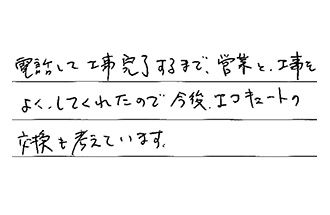 電話して工事完了するまで、営業と、工事を
よく、してくれたので今後、エコキュートの
交換も考えています。